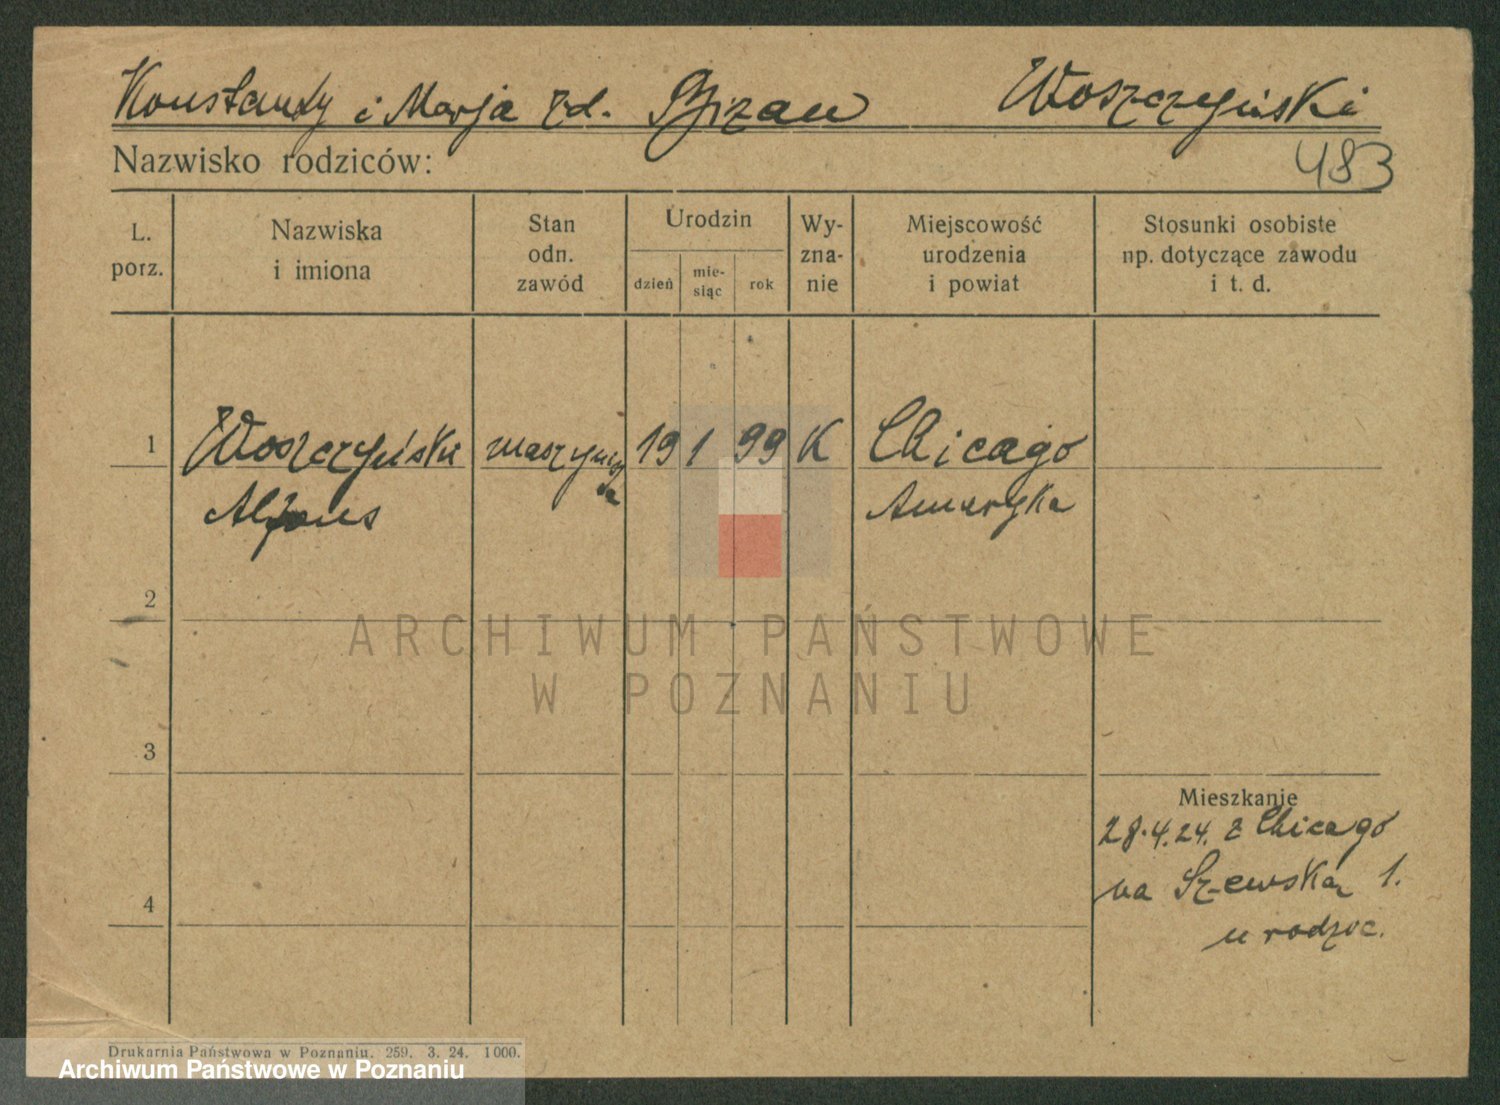 Konstanty i Marja zd. Bizan Woszczyński
Nazwisko rodziców:
483
L.
porz.
Nazwiska
i imiona
Stan
odn.
zawód
Urodzin
dzień
mie-
siąc
rok
Wy-
zna-
nie
Miejscowość
urodzenia
i powiat
Stosunki osobiste
np. dotyczące zawodu
i t. d.
1 Woszczyński maszynis 19 1 99 K Chicago
ta
Alfons Ameryka
2
ARCHIWUM PAŃSTWOWE
W POZNANIU
3
Mieszkanie
28.4.24. z Chicago
na Szewska 1.
4
u rodzic.
Drukarnia Państwowa w Poznaniu. 259. 3. 24. 1000.
Archiwum Państwowe w Poznaniu